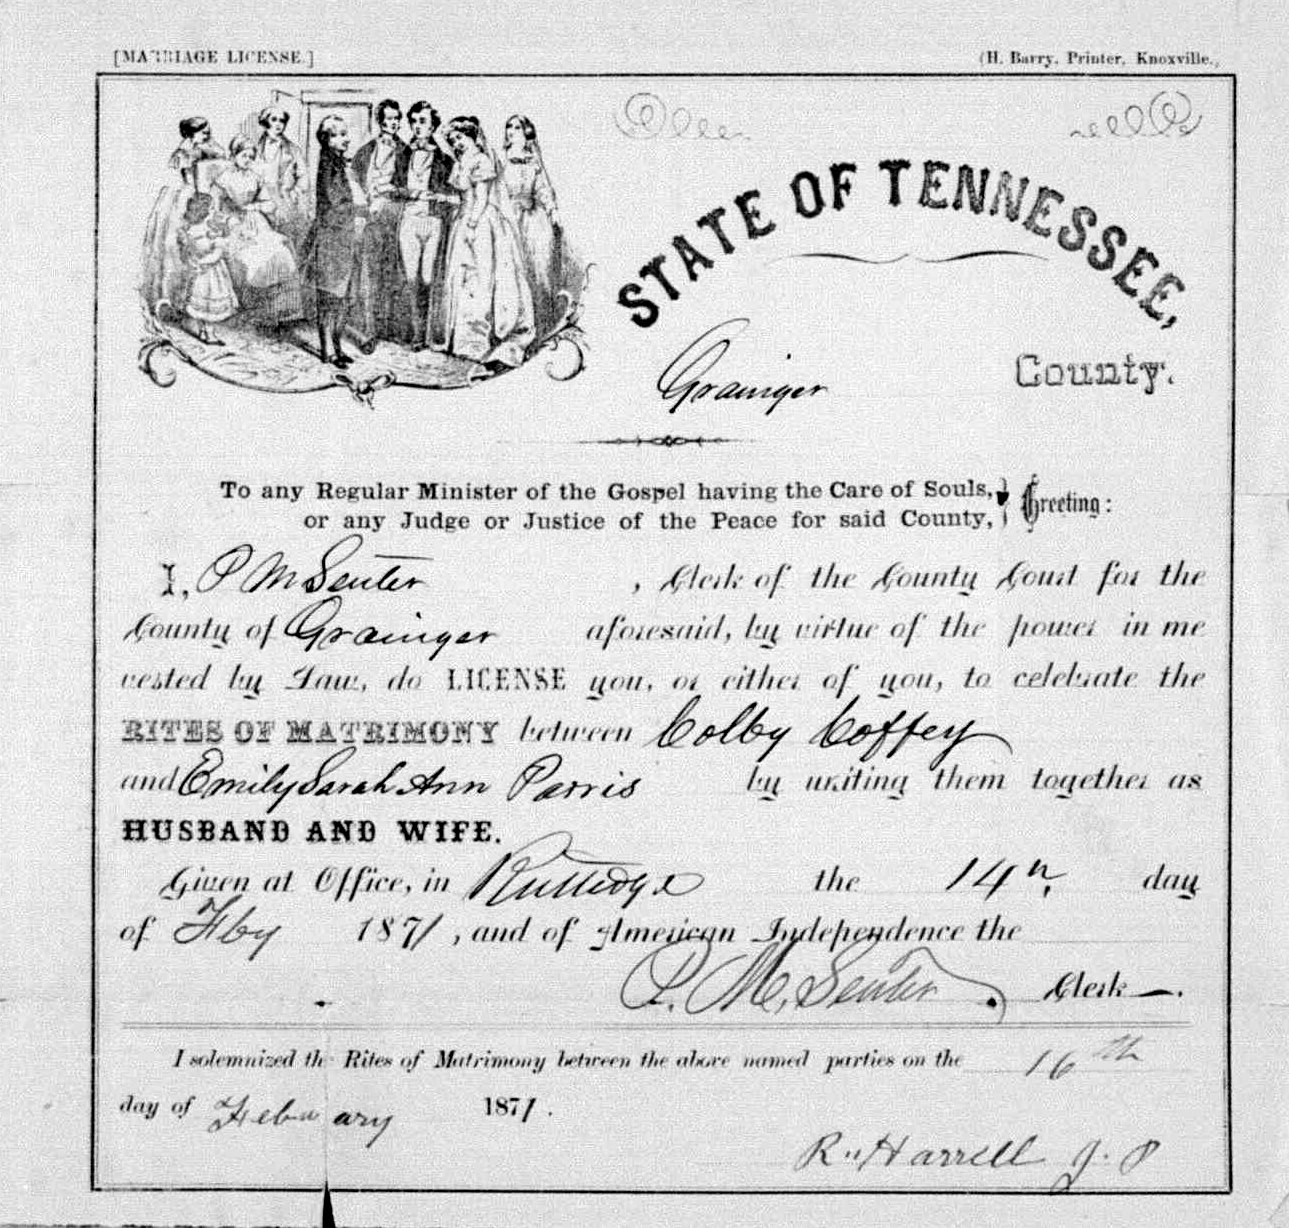 [MARRIAGE LICENSE.]
(H. Barry, Printer, Knoxville.)
STATE OF TENNESSEE,
Grainger County.
To any Regular Minister of the Gospel having the Care of Souls,
or any Judge or Justice of the Peace for said County,
Greeting:
I, P M Senter, Clerk of the County Court for the
County of Grainger aforesaid, by virtue of the power in me
vested by Law, do LICENSE you, or either of you, to celebrate the
RITES OF MATRIMONY between Colby Coffey
and Emily Sarah Ann Parris by uniting them together as
HUSBAND AND WIFE.
Given at Office, in Rutledge the 14th day
of Feby 1871, and of American Independence the
P. M. Senter Clerk.
I solemnized the Rites of Matrimony between the above named parties on the 16th
day of February 1871.
R. Harrell J. P